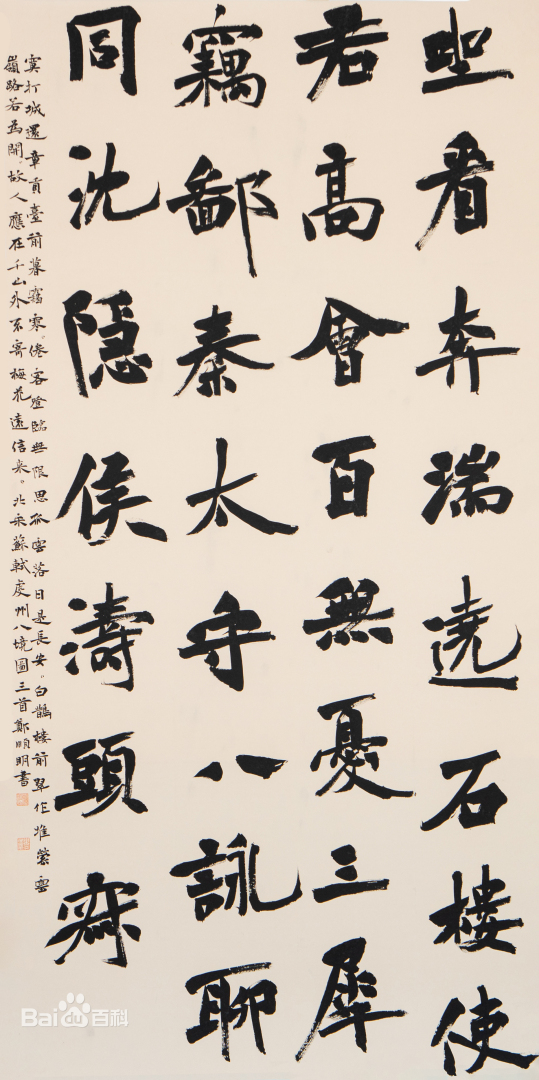 坐看奔湍遶石樓使
君高會百無憂三犀
竊鄙秦太守八詠聊
同沈隱侯濤頭寂
寞打城還章貢臺前暮靄寒。倦客登臨無限思孤雲落日是長安。白鵲樓前翠作堆縈雲
嶺路若為開。故人應在千山外不寄梅花遠信來。北宋蘇軾虔州八境圖三首鄭明書
Bai du 百科